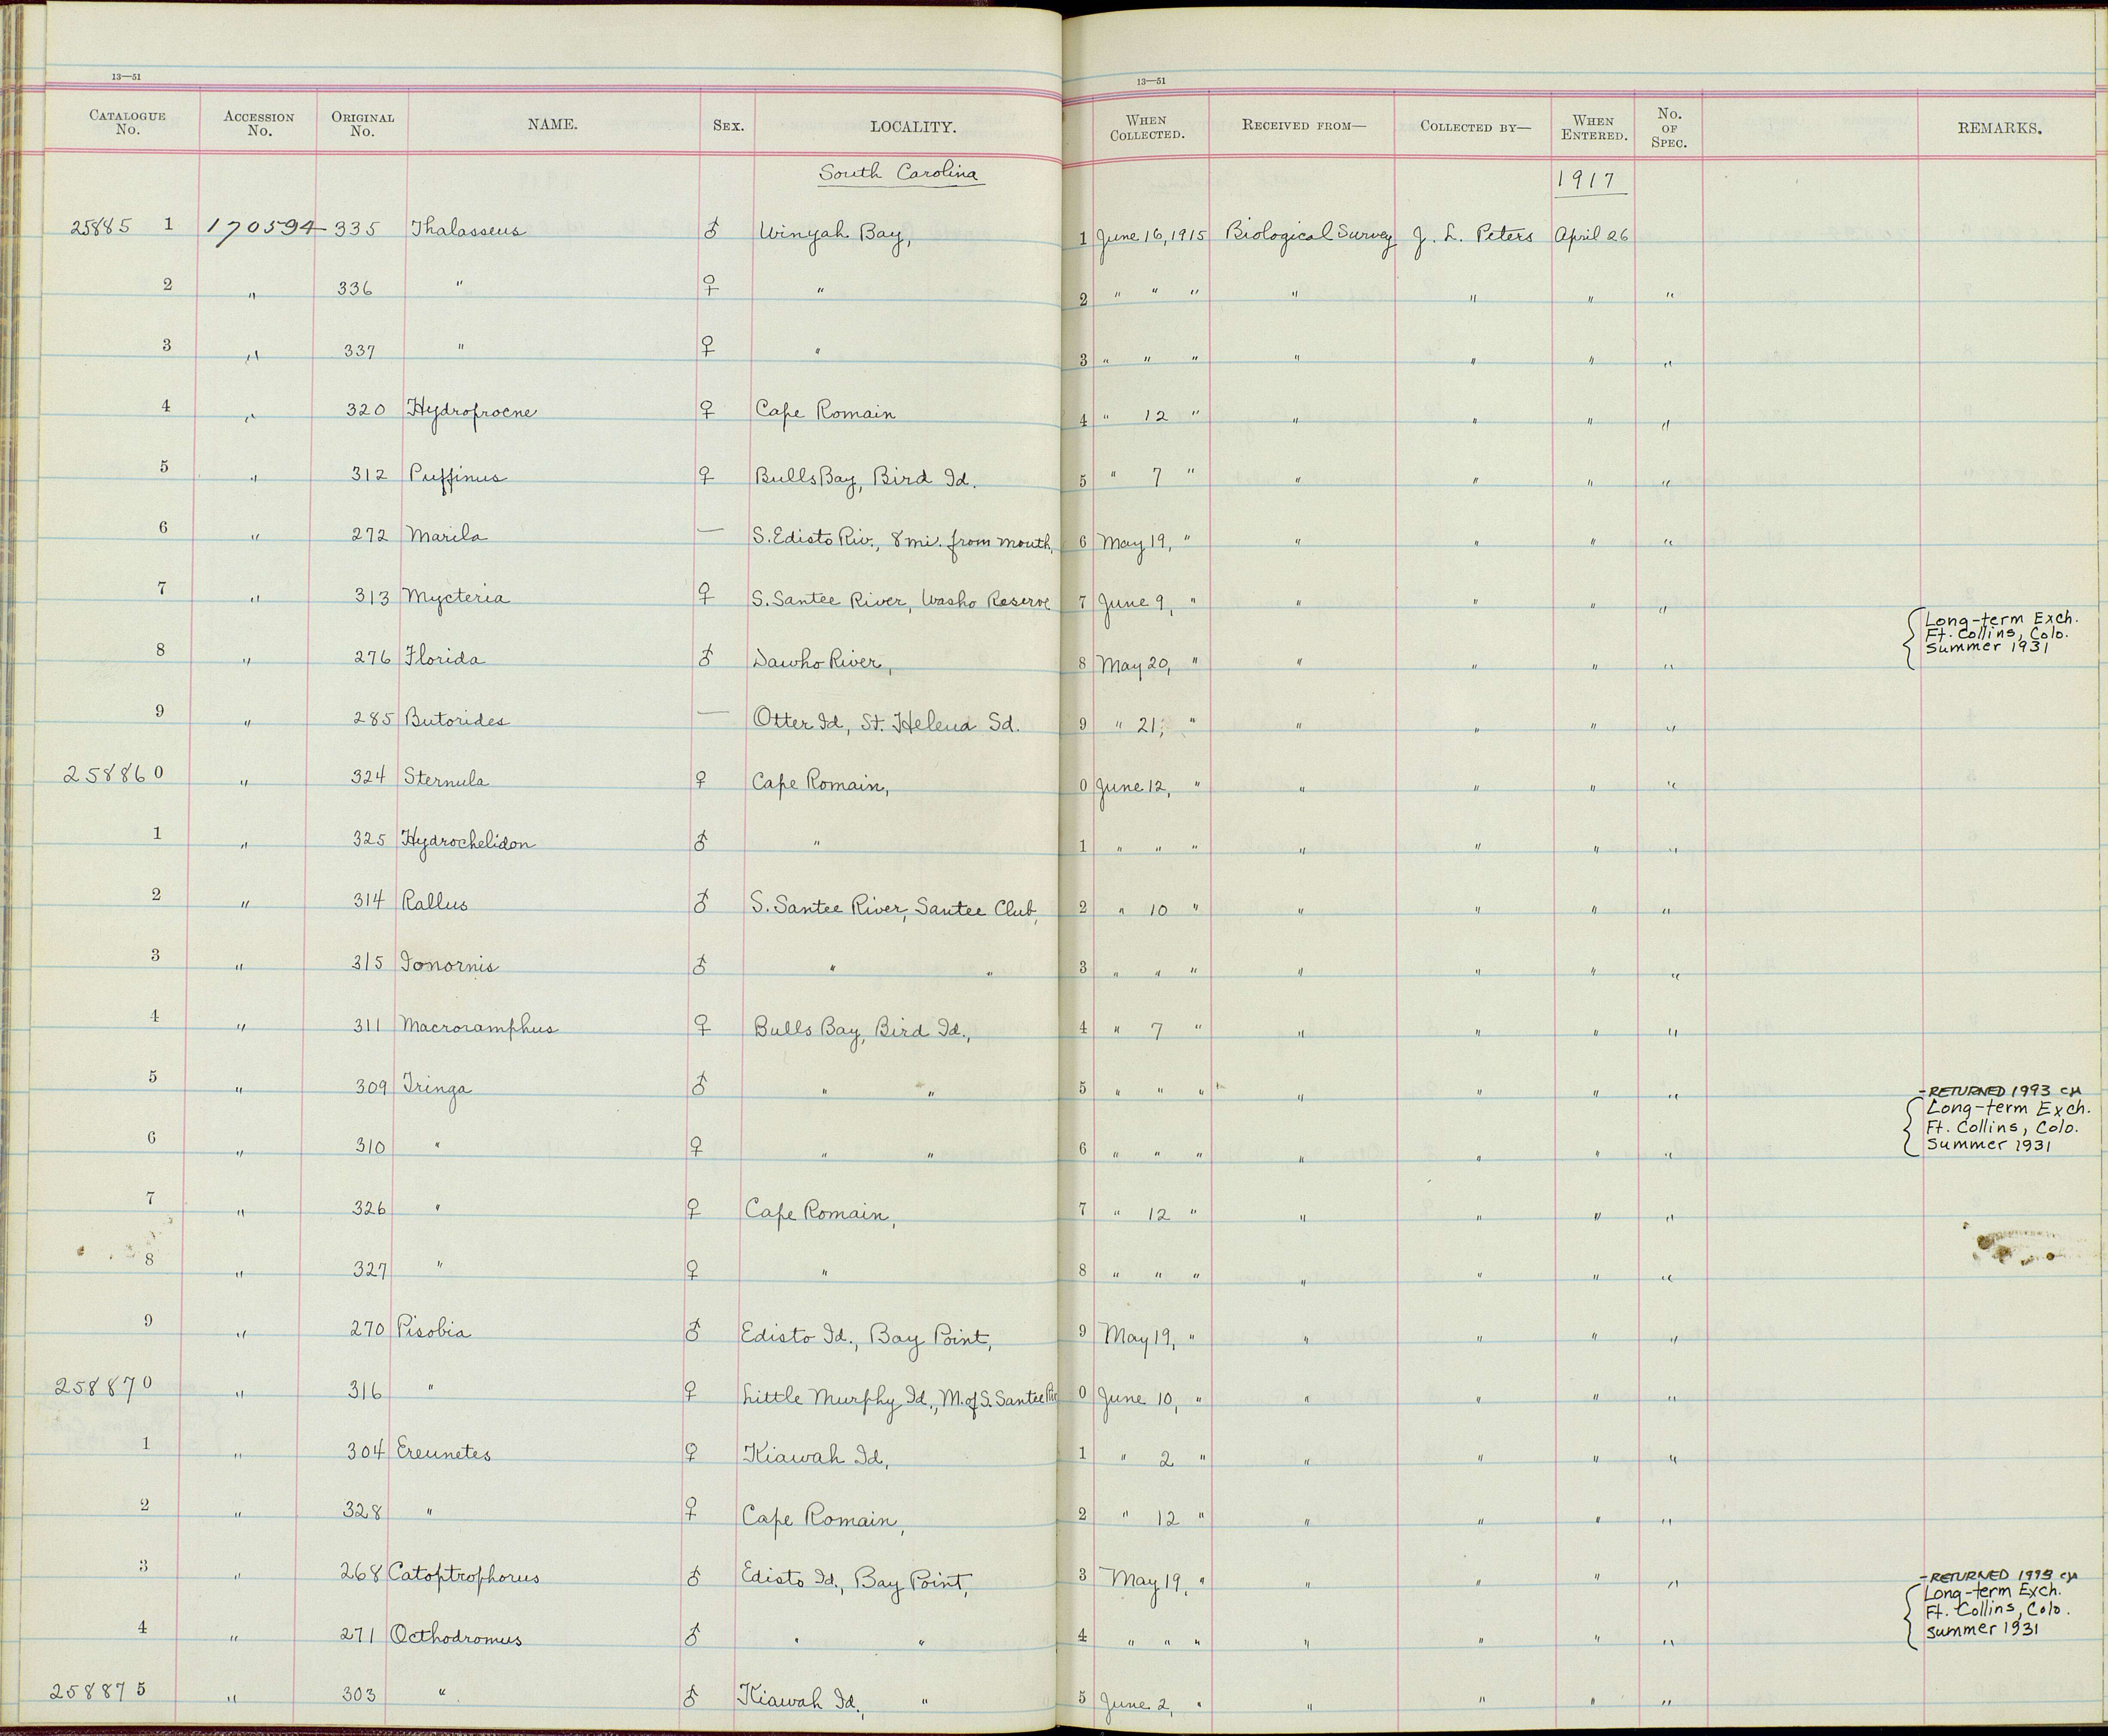 13—51 13—51
CATALOGUE No. ACCESSION No. ORIGINAL No. NAME. SEX. LOCALITY. WHEN COLLECTED. RECEIVED FROM— COLLECTED BY— WHEN ENTERED. No. OF SPEC. REMARKS.
South Carolina 1917
25885 1 170594 335 Thalasseus ♂ Winyah Bay, 1 June 16, 1915 Biological Survey J. L. Peters April 26
2 " 336 " ♀ " 2 " " " " " " "
3 " 337 " ♀ " 3 " " " " " " "
4 " 320 Hydroprocne ♀ Cape Romain 4 " 12 " " " " "
5 " 312 Puffinus ♀ Bulls Bay, Bird Id. 5 " 7 " " " " "
6 " 272 Marila — S. Edisto Riv., 8 mi. from mouth, 6 May 19, " " " " "
7 " 313 Mycteria ♀ S. Santee River, Washo Reserve 7 June 9, " " " " "
8 " 276 Florida ♂ Dawho River, 8 May 20, " " " " " Long-term Exch.
Ft. Collins, Colo.
Summer 1931
9 " 285 Butorides — Otter Id, St. Helena Sd. 9 " 21, " " " " "
258860 " 324 Sternula ♀ Cape Romain, 0 June 12, " " " " "
1 " 325 Hydrochelidon ♂ " 1 " " " " " " "
2 " 314 Rallus ♂ S. Santee River, Santee Club, 2 " 10 " " " " "
3 " 315 Ionornis ♂ " " 3 " " " " " " "
4 " 311 Macroramphus ♀ Bulls Bay, Bird Id., 4 " 7 " " " " "
5 " 309 Tringa ♂ " " 5 " " " " " " " - RETURNED 1993 CA
6 " 310 " ♀ " " 6 " " " " " " " Long-term Exch.
Ft. Collins, Colo.
Summer 1931
7 " 326 " ♀ Cape Romain, 7 " 12 " " " " "
8 " 327 " ♀ " 8 " " " " " " "
9 " 270 Pisobia ♂ Edisto Id., Bay Point, 9 May 19, " " " " "
258870 " 316 " ♀ Little Murphy Id., M. of S. Santee Riv 0 June 10, " " " " "
1 " 304 Ereunetes ♀ Kiawah Id, 1 " 2 " " " " "
2 " 328 " ♀ Cape Romain, 2 " 12 " " " " "
3 " 268 Catoptrophorus ♂ Edisto Id., Bay Point, 3 May 19, " " " " " - RETURNED 1993 CA
4 " 271 Octhodromus ♂ " " 4 " " " " " " " Long-term Exch.
Ft. Collins, Colo.
Summer 1931
258875 " 303 " ♂ Kiawah Id., " 5 June 2, " " " " "